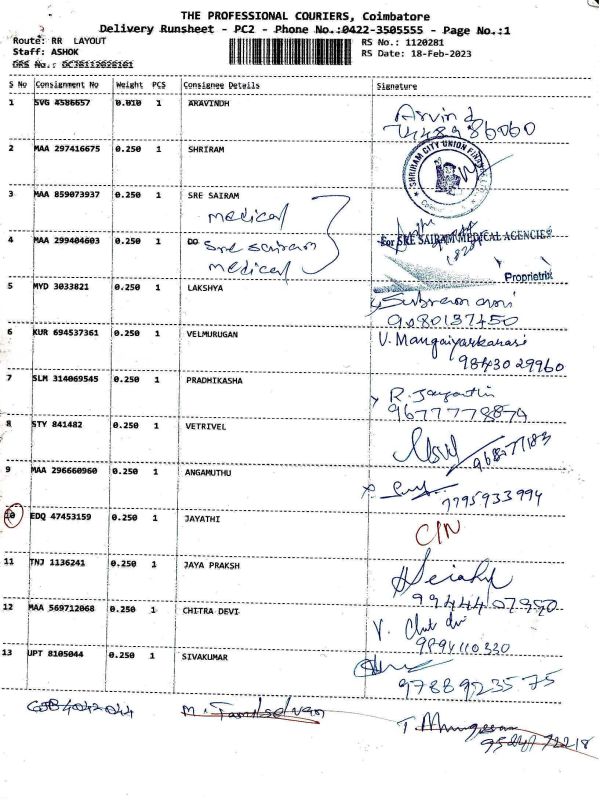 THE PROFESSIONAL COURIERS, Coimbatore
Delivery Runsheet - PC2 - Phone No.:0422-3505555 - Page No.:1
Route: RR LAYOUT RS No.: 1120281
Staff: ASHOK RS Date: 18-Feb-2023
DRS No.:
S No Consignment No Weight PCS Consignee Details Signature
1 SVG 4586657 0.010 1 ARAVINDH
2 MAA 297416675 0.250 1 SHRIRAM
SHRIRAM CITY UNION
3 MAA 859073937 0.250 1 SRE SAIRAM
medical
4 MAA 299404603 0.250 1 DO Sre sairam
medical
For SRE SAIRAM MEDICAL AGENCIES
Proprietrix
5 MYD 3033821 0.250 1 LAKSHYA
9080137450
6 KUR 694537361 0.250 1 VELMURUGAN V. Mangaiyarkarasi
9843029960
7 SLM 314069545 0.250 1 PRADHIKASHA R. Jayanthi
9677778874
8 STY 841482 0.250 1 VETRIVEL
9 MAA 296660960 0.250 1 ANGAMUTHU
7795933994
10 EDQ 47453159 0.250 1 JAYATHI
11 TNJ 1136241 0.250 1 JAYA PRAKSH
12 MAA 569712068 0.250 1 CHITRA DEVI
9894110330
13 UPT 8105044 0.250 1 SIVAKUMAR
9788923575
M. Tamilselvan
T. Murugesan